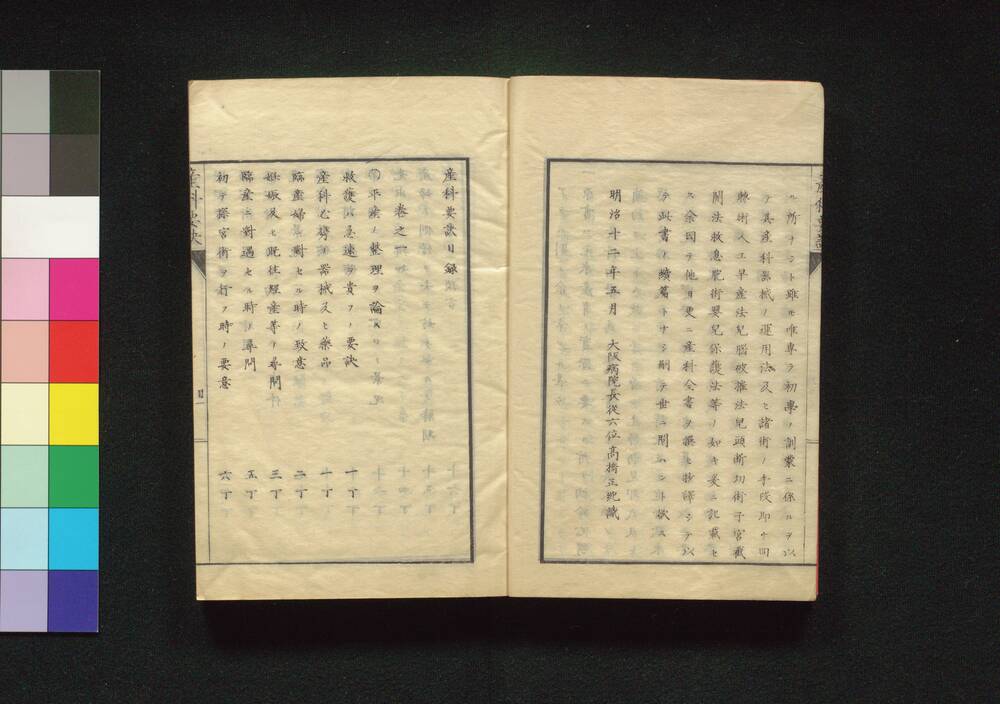 ル所ナシト雖モ唯專ラ初學ノ創業ニ係ルヲ以
テ其産科器械ノ運用法及ヒ諸術ノ手段即チ回
轉術人工早産法兒腦破摧法兒頭斷切術子宮截
開法救急麻術嬰兒保護法等ノ如キ妄ニ記載セ
ス余因テ他日更ニ産科全書ヲ撰ヒ抄譯シテ以
テ此書ノ續篇トナシ嗣テ世ニ聞ハント欲ス
明治十二年五月 大阪病院長從六位高橋正純識
産科要訣目録
卷之一
平産ノ整理ヲ論ス
救護ノ急速ヲ貴フノ要訣 一丁
産科必携ノ器械及ヒ藥品 一丁
臨産婦ニ對セル時ノ致意 二丁
妊娠及ヒ既往經産等ノ尋問 三丁
臨産ニ對遇セル時ノ尋問 五丁
初テ探宮術ヲ行フ時ノ要意 六丁
産科要訣
目一